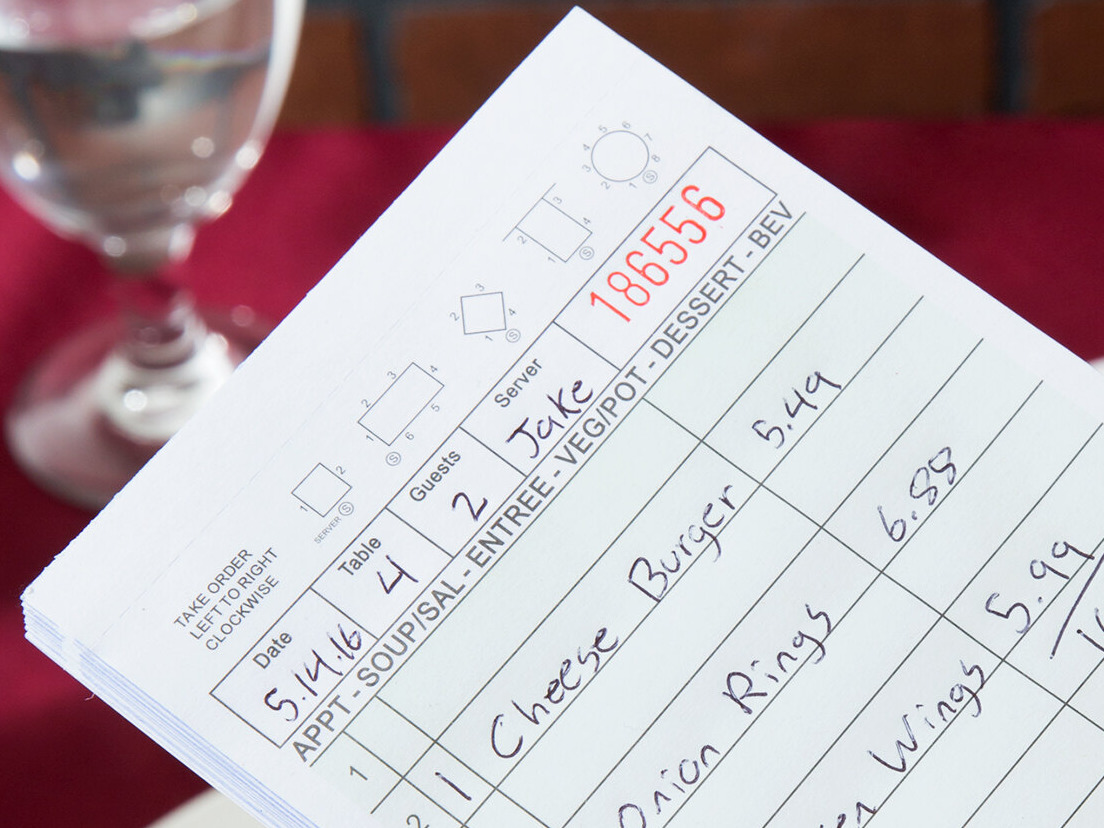 TAKE ORDER
LEFT TO RIGHT
CLOCKWISE
1 2 SERVER S
1 2 3 4 5 6 S
1 2 3 4 S
1 2 3 4 S
1 2 3 4 5 6 7 8 S
Date Table Guests Server
5.14.16 4 2 Jake 186556
APPT - SOUP/SAL - ENTREE - VEG/POT - DESSERT - BEV
1
2 1 Cheese Burger 5.49
Onion Rings 6.88
Wings 5.99